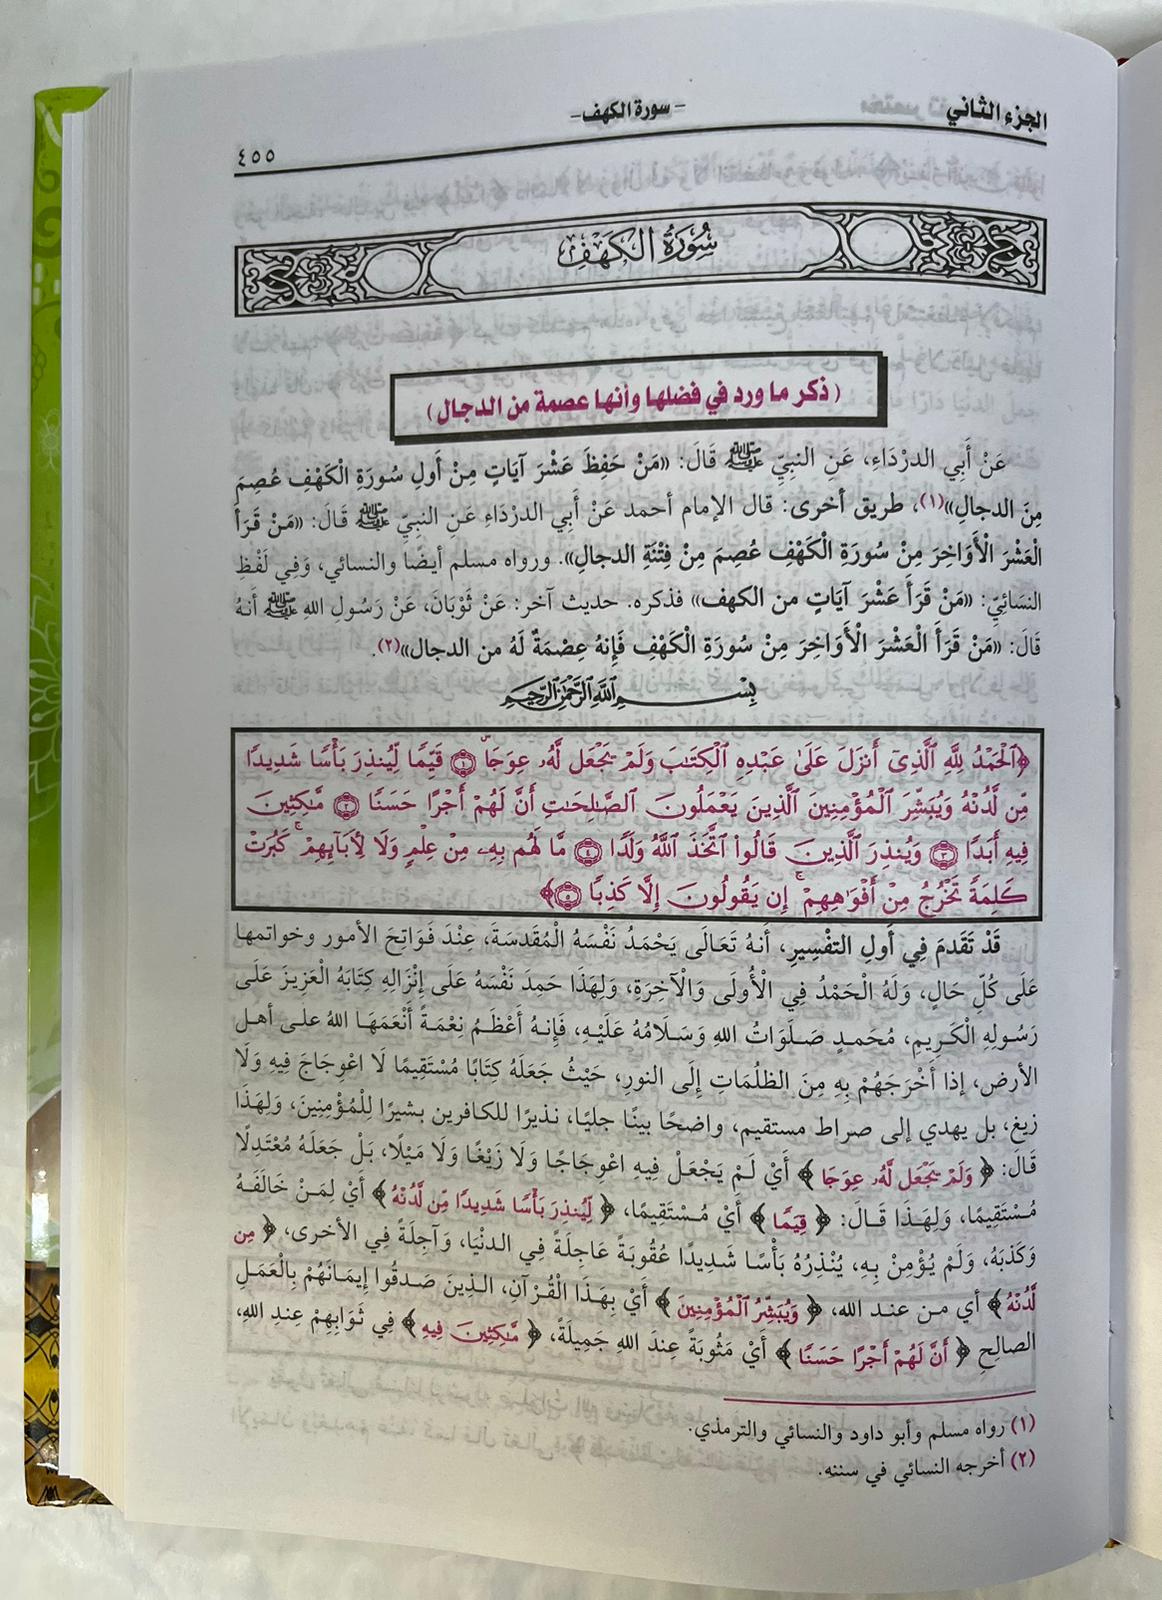 الجزء الثاني
- سورة الكهف -
٤٥٥
سُورَةُ الكَهْفِ
( ذكر ما ورد في فضلها وأنها عصمة من الدجال )
عَنْ أَبِي الدرْدَاءِ، عَنِ النبِيِّ ﷺ قَالَ: «مَنْ حَفِظَ عَشْرَ آيَاتٍ مِنْ أَولِ سُورَةِ الْكَهْفِ عُصِمَ
مِنَ الدجالِ»(١)، طريق أخرى: قال الإمام أحمد عَنْ أَبِي الدرْدَاءِ عَنِ النبِيِّ ﷺ قَالَ: «مَنْ قَرَأَ
الْعَشْرَ الْأَوَاخِرَ مِنْ سُورَةِ الْكَهْفِ عُصِمَ مِنْ فِتْنَةِ الدجالِ». ورواه مسلم أيضًا والنسائي، وَفِي لَفْظِ
النسَائِيِّ: «مَنْ قَرَأَ عَشْرَ آيَاتٍ من الكهف» فذكره. حديث آخر: عَنْ ثَوْبَانَ، عَنْ رَسُولِ اللهِ ﷺ أنهُ
قَالَ: «مَنْ قَرَأَ الْعَشْرَ الْأَوَاخِرَ مِنْ سُورَةِ الْكَهْفِ فَإِنهُ عِصْمَةٌ لَهُ من الدجال»(٢).
بِسْمِ ٱللَّهِ ٱلرَّحْمَٰنِ ٱلرَّحِيمِ
﴿ٱلْحَمْدُ لِلَّهِ ٱلَّذِىٓ أَنزَلَ عَلَىٰ عَبْدِهِ ٱلْكِتَٰبَ وَلَمْ يَجْعَل لَّهُۥ عِوَجَاۜ ١ قَيِّمًا لِّيُنذِرَ بَأْسًا شَدِيدًا
مِّن لَّدُنْهُ وَيُبَشِّرَ ٱلْمُؤْمِنِينَ ٱلَّذِينَ يَعْمَلُونَ ٱلصَّٰلِحَٰتِ أَنَّ لَهُمْ أَجْرًا حَسَنًا ٢ مَّٰكِثِينَ
فِيهِ أَبَدًا ٣ وَيُنذِرَ ٱلَّذِينَ قَالُوا۟ ٱتَّخَذَ ٱللَّهُ وَلَدًا ٤ مَّا لَهُم بِهِۦ مِنْ عِلْمٍ وَلَا لِـَٔابَآئِهِمْ ۚ كَبُرَتْ
كَلِمَةً تَخْرُجُ مِنْ أَفْوَٰهِهِمْ ۚ إِن يَقُولُونَ إِلَّا كَذِبًا ٥﴾
قَدْ تَقَدمَ فِي أَولِ التفْسِيرِ، أَنهُ تَعَالَى يَحْمَدُ نَفْسَهُ الْمُقَدسَةَ، عِنْدَ فَوَاتِحَ الأمور وخواتمها
عَلَى كُلِّ حَالٍ، وَلَهُ الْحَمْدُ فِي الْأُولَى وَالْآخِرَةِ، وَلِهَذَا حَمِدَ نَفْسَهُ عَلَى إِنْزَالِهِ كِتَابَهُ الْعَزِيزَ عَلَى
رَسُولِهِ الْكَرِيمِ، مُحَمدٍ صَلَوَاتُ اللهِ وَسَلَامُهُ عَلَيْهِ، فَإِنهُ أَعْظَمُ نِعْمَةً أَنْعَمَهَا اللهُ على أهل
الأرض، إذا أَخْرَجَهُمْ بِهِ مِنَ الظلُمَاتِ إِلَى النورِ، حَيْثُ جَعَلَهُ كِتَابًا مُسْتَقِيمًا لَا اعْوِجَاجَ فِيهِ وَلَا
زيغ، بل يهدي إلى صراط مستقيم، واضحًا بينًا جليًا، نذيرًا للكافرين بشيرًا لِلْمُؤْمِنِينَ، وَلِهَذَا
قَالَ: ﴿ وَلَمْ يَجْعَل لَّهُۥ عِوَجَا ﴾ أَيْ لَمْ يَجْعَلْ فِيهِ اعْوِجَاجًا وَلَا زَيْغًا وَلَا مَيْلًا، بَلْ جَعَلَهُ مُعْتَدِلًا
مُسْتَقِيمًا، وَلِهَذَا قَالَ: ﴿ قَيِّمًا ﴾ أَيْ مُسْتَقِيمًا، ﴿ لِّيُنذِرَ بَأْسًا شَدِيدًا مِّن لَّدُنْهُ ﴾ أَيْ لِمَنْ خَالَفَهُ
وَكَذبَهُ، وَلَمْ يُؤْمِنْ بِهِ، يُنْذِرُهُ بَأْسًا شَدِيدًا عُقُوبَةً عَاجِلَةً فِي الدنْيَا، وَآجِلَةً فِي الأخرى، ﴿ مِن
لَّدُنْهُ﴾ أي من عند الله، ﴿ وَيُبَشِّرَ ٱلْمُؤْمِنِينَ ﴾ أَيْ بِهَذَا الْقُرْآنِ، الذِينَ صَدقُوا إِيمَانَهُمْ بِالْعَمَلِ
الصالِحِ ﴿ أَنَّ لَهُمْ أَجْرًا حَسَنًا ﴾ أَيْ مَثُوبَةً عِندَ اللهِ جَمِيلَةً، ﴿ مَّٰكِثِينَ فِيهِ ﴾ فِي ثَوَابِهِمْ عِندِ اللهِ،
(١) رواه مسلم وأبو داود والنسائي والترمذي.
(٢) أخرجه النسائي في سننه.